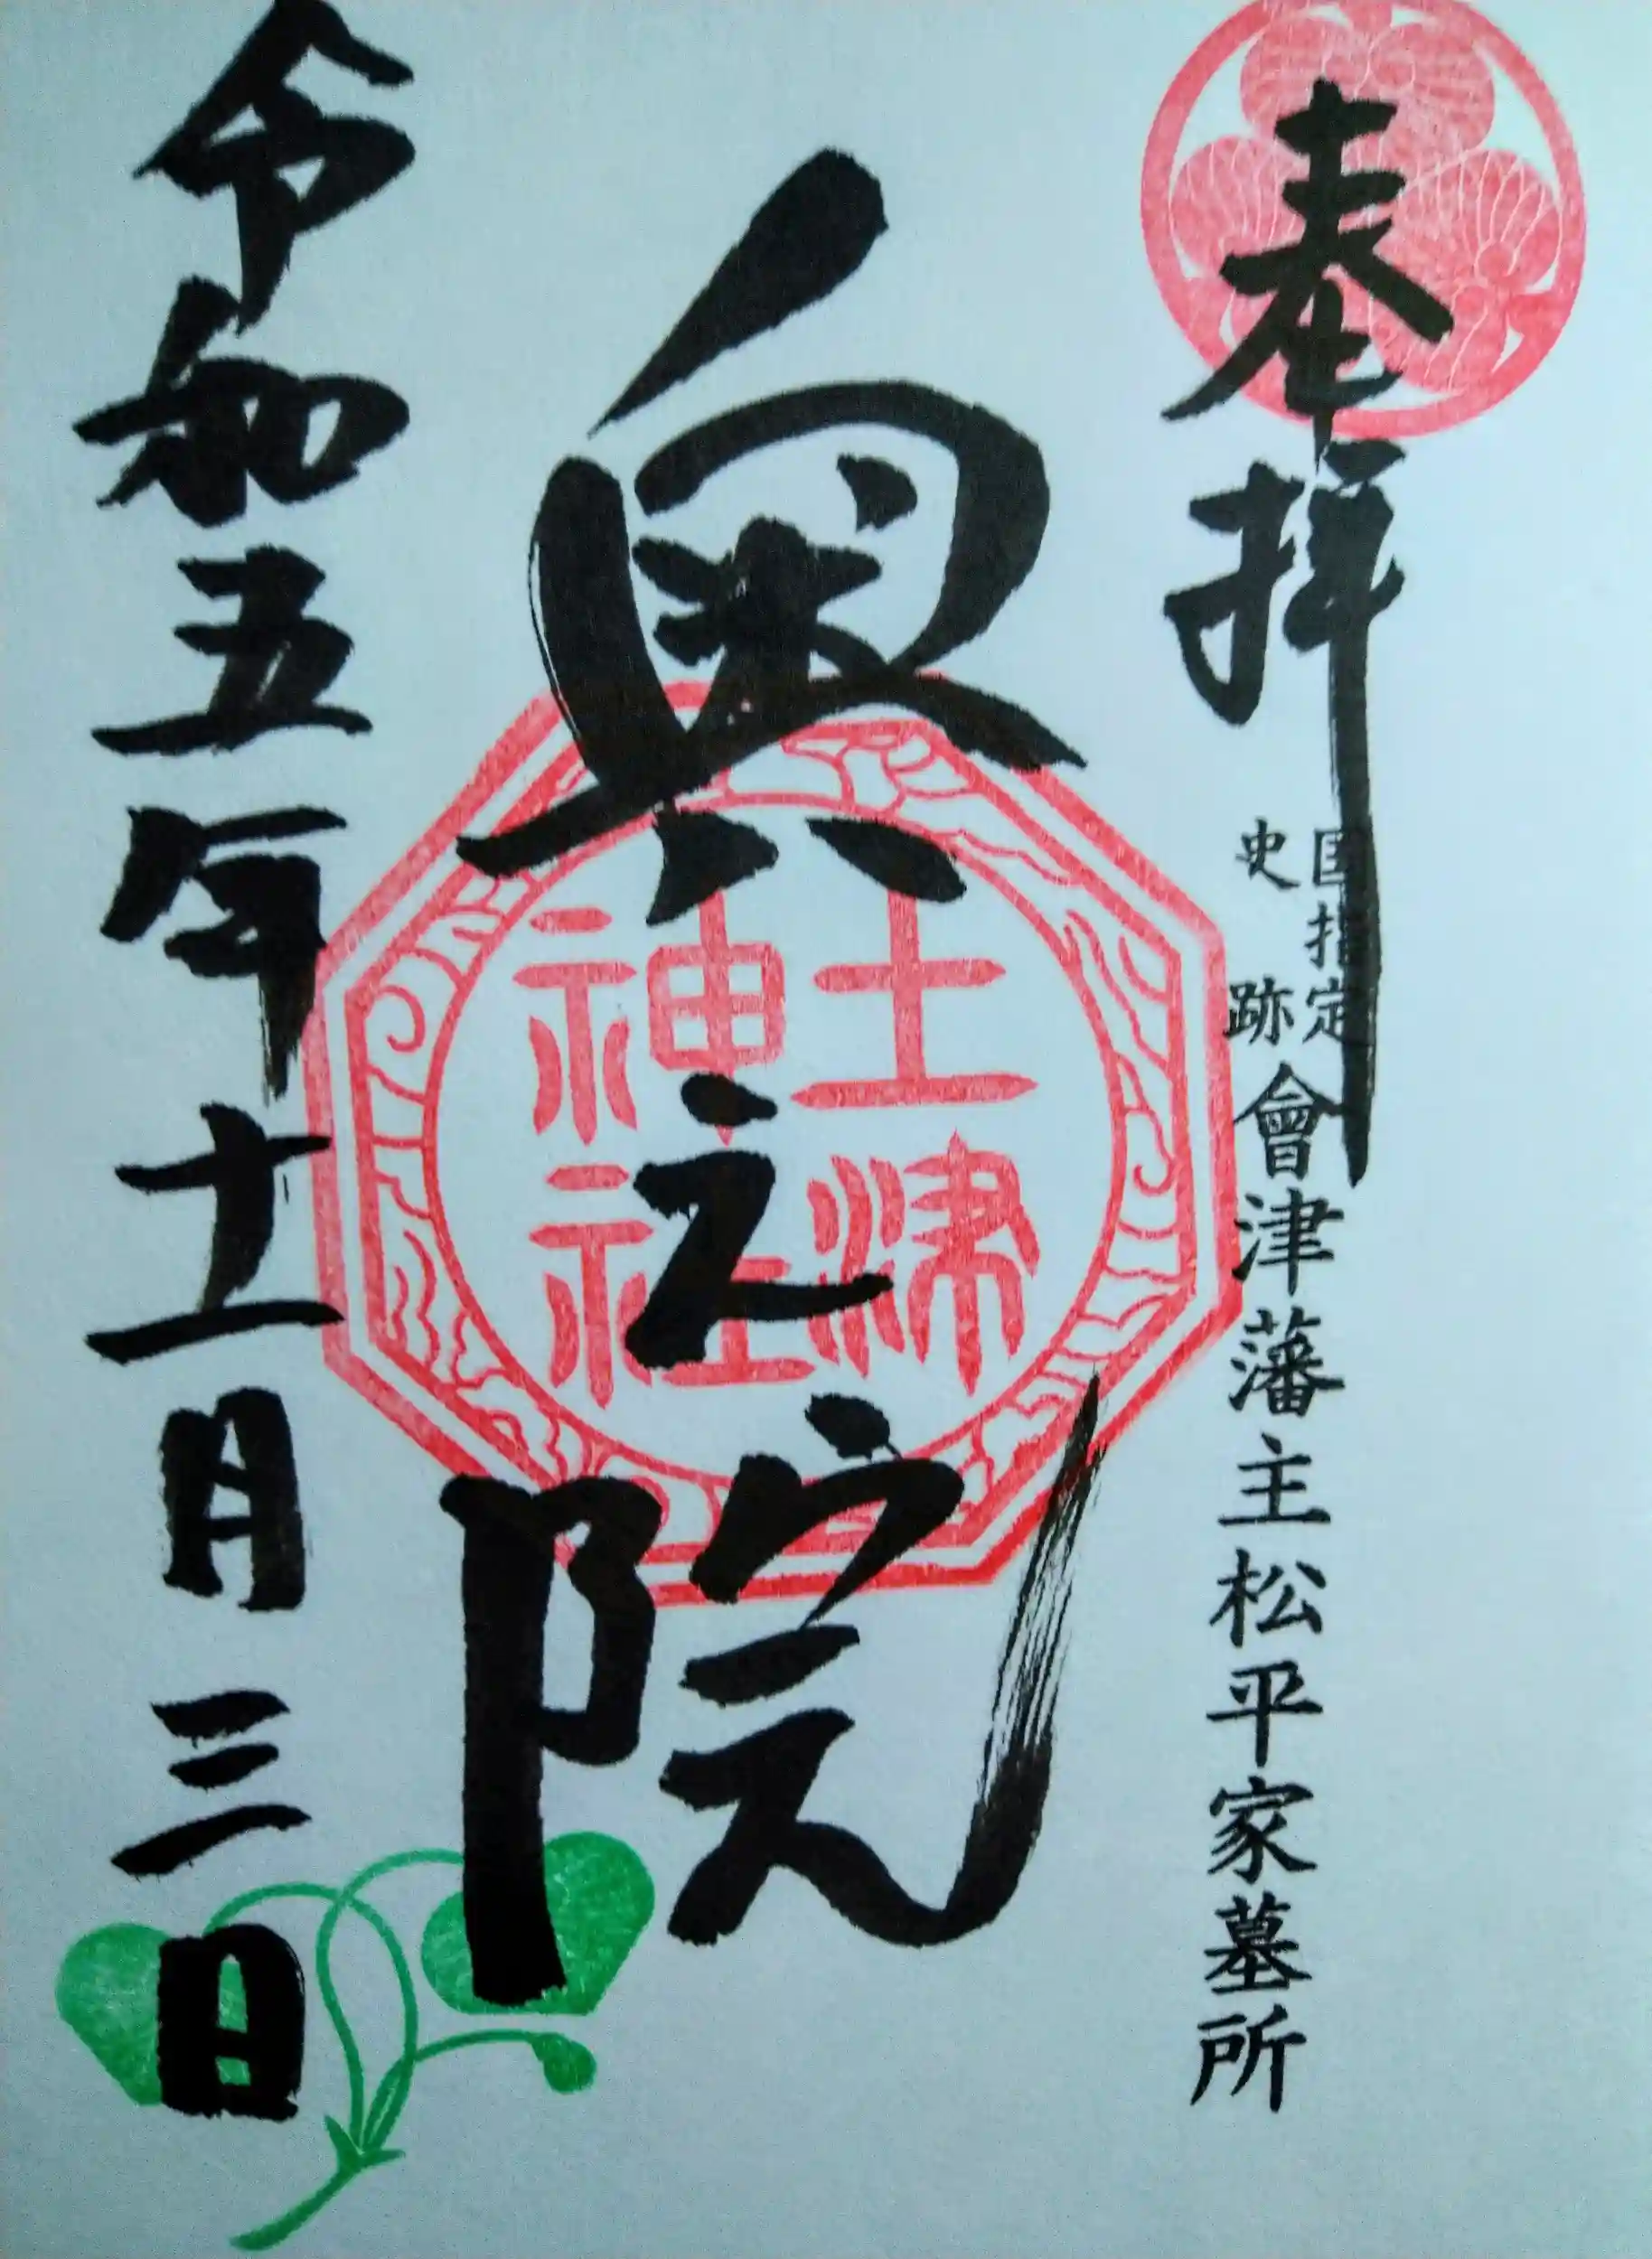 奉拝
国指定
史跡
會津藩主松平家墓所
奥之院
土津
神社
令和五年十一月三日